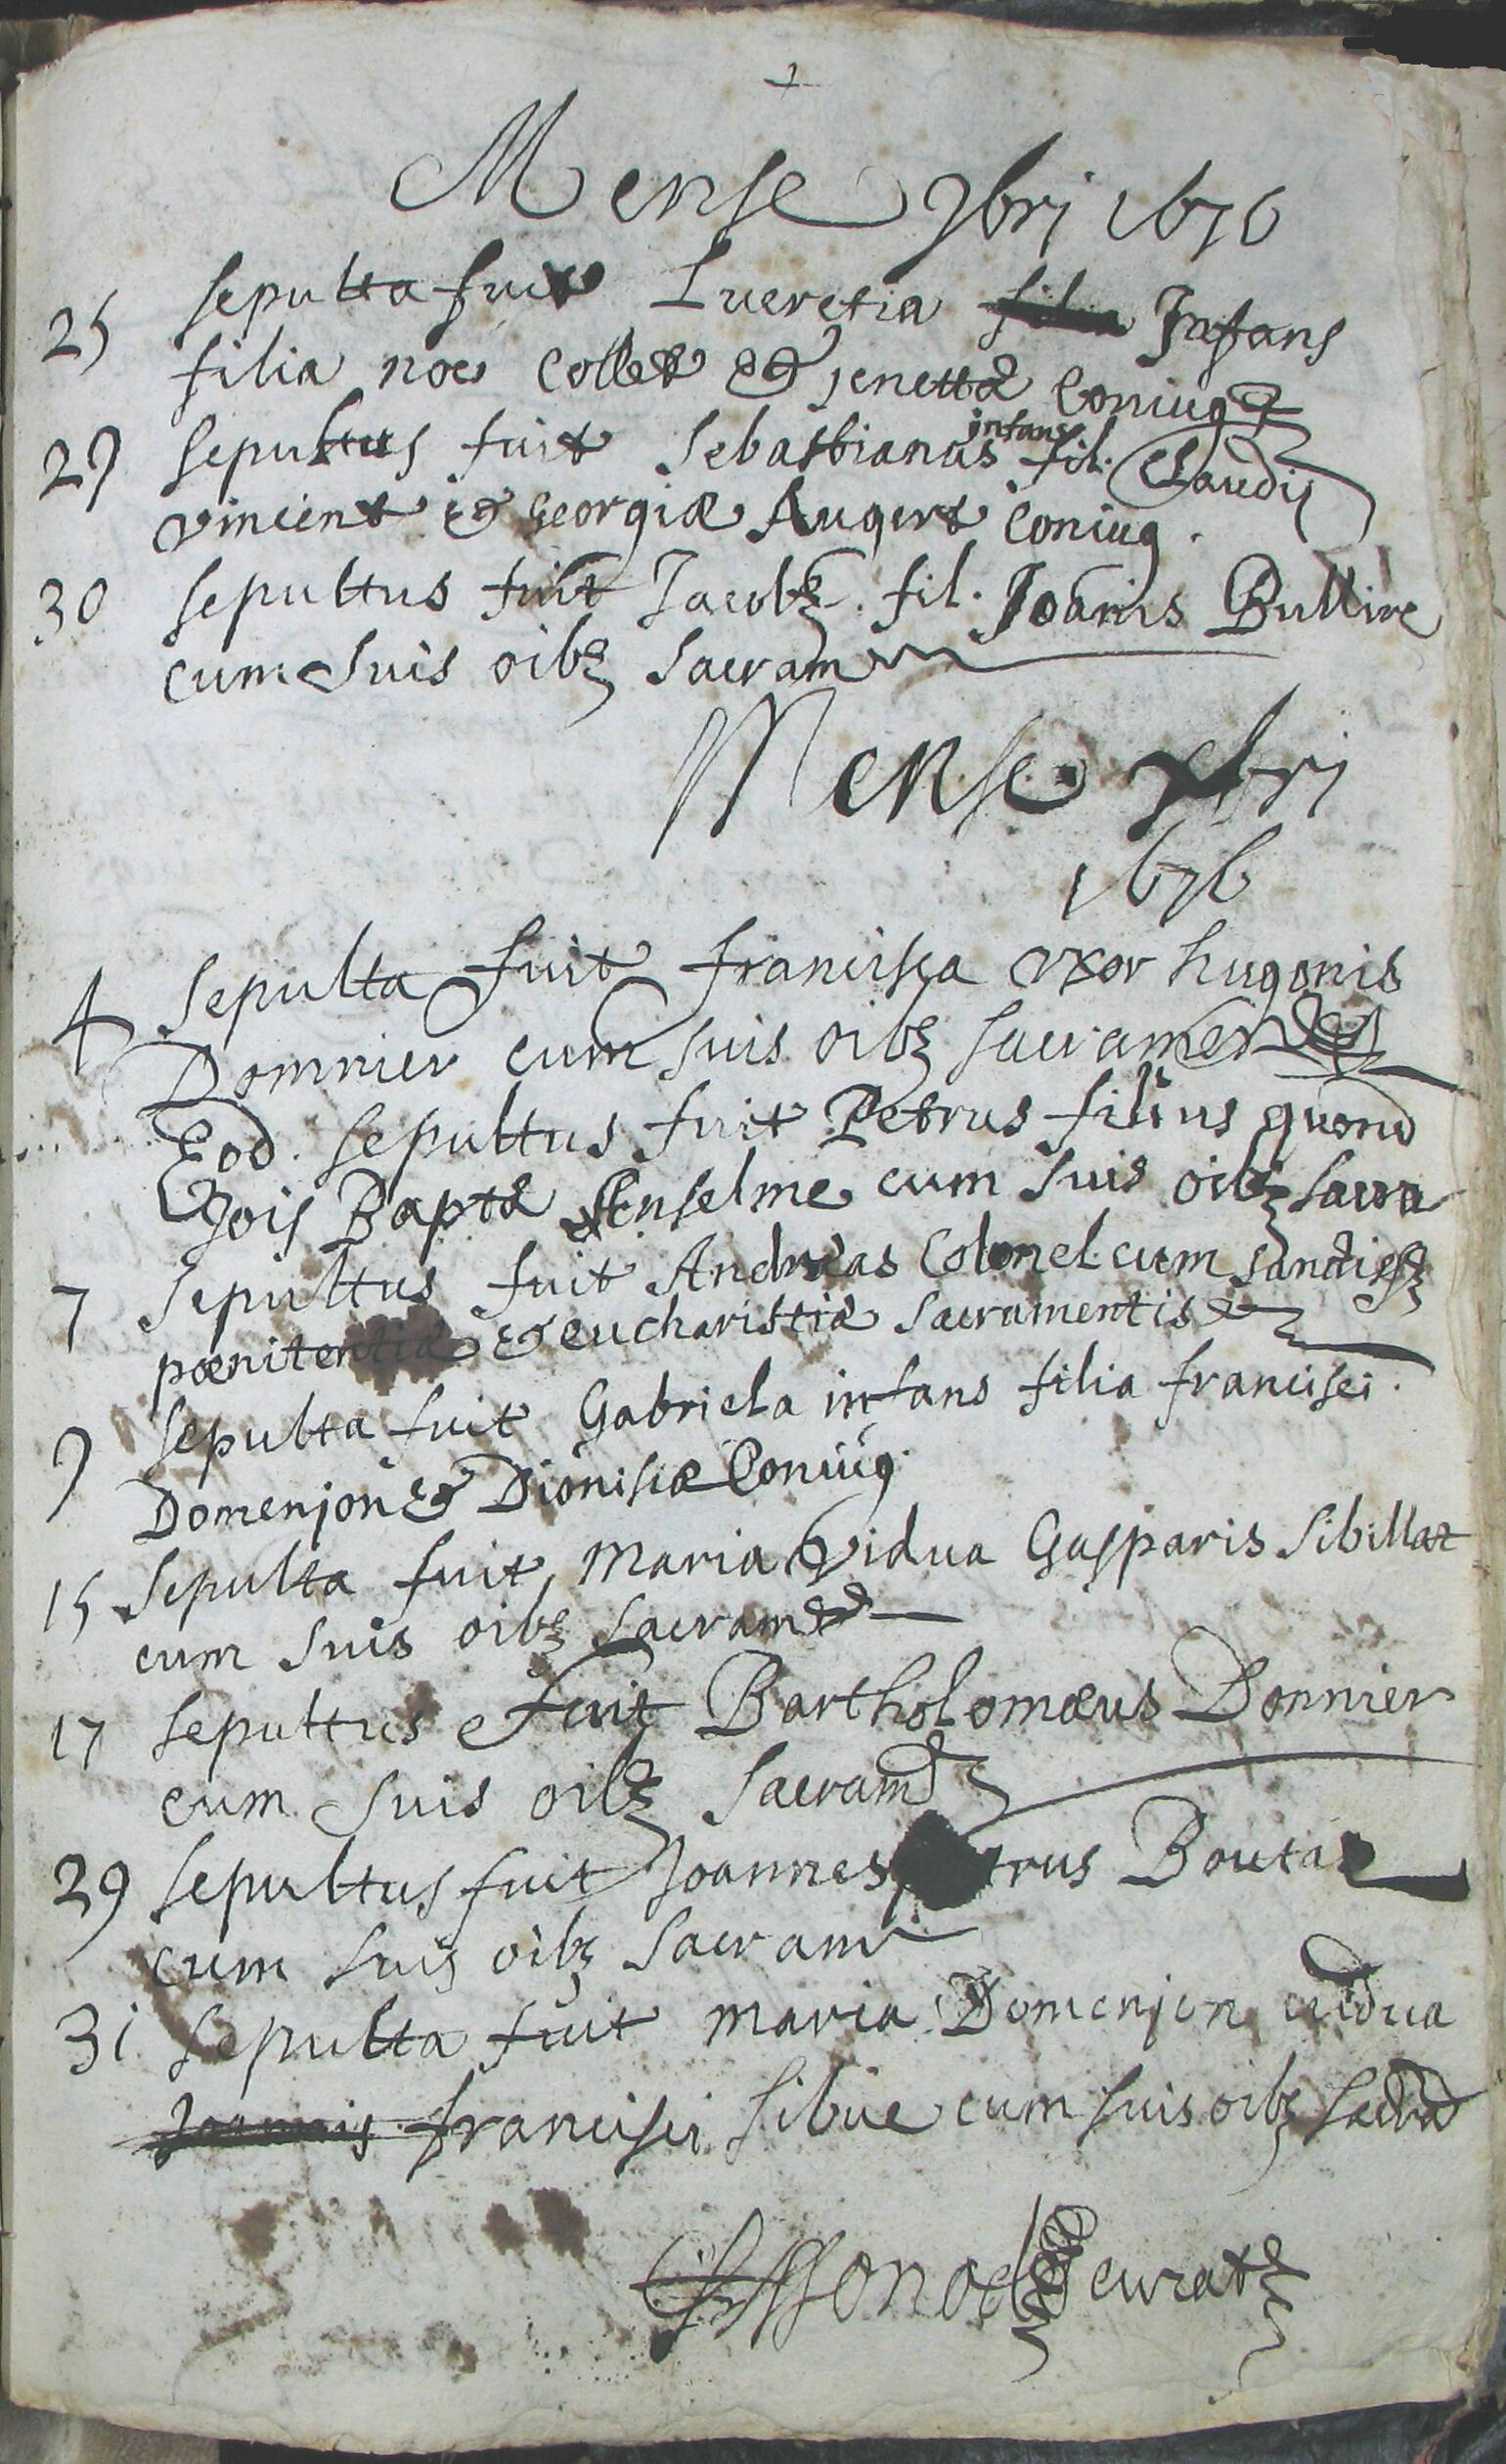 +
Mense 9bri 1676
25 sepulta fuit Lucretia filia Infans
filia noe Collet et Jenettæ Coniug
29 sepultus fuit Sebastianus infans fil. Claudij
vincent et Georgiæ Augert Coniug.
30 sepultus fuit Jacobz. fil. Joanis Bullire
cum suis oibz sacram
Mense xbri
1676
4 sepulta fuit francisca vxor hugonis
Domnier cum suis oibz sacrament
Eod. sepultus fuit Petrus filius quond
Jois Baptæ Anselme cum suis oibz sacra
7 sepultus fuit Andreas Colonel cum
pœnitentiæ et eucharistiæ sacramentis
9 sepulta fuit Gabriela infans filia francisci.
Domenjon et Dionisiæ Coniug.
15 sepulta fuit Maria Vidua Gasparis Sibillat
cum suis oibz sacram
17 sepultus fuit Bartholomæus Donnier
cum suis oibz sacram
29 sepultus fuit Joannes trus Boutaz
cum suis oibz sacram
31 sepulta fuit maria Domenjon vidua
Joannis francisci Sibue cum suis oibz sacra
curat